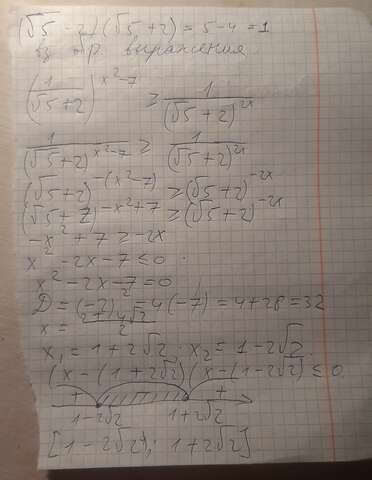 (√5 - 2)(√5 + 2) = 5 - 4 = 1
вз. пр. выражения
(1/(√5+2))^(x²-7) ≥ 1/(√5+2)^(2x)
1/(√5+2)^(x²-7) ≥ 1/(√5+2)^(2x)
(√5+2)^(-(x²-7)) ≥ (√5+2)^(-2x)
(√5+7)^(-x²+7) ≥ (√5+2)^(-2x)
-x² + 7 ≥ -2x
x² - 2x - 7 ≤ 0.
x² - 2x - 7 = 0
D = (-2)² - 4(-7) = 4 + 28 = 32
x = (2 ± 4√2)/2
x₁ = 1 + 2√2 x₂ = 1 - 2√2.
(x - (1 + 2√2)(x - (1 - 2√2) ≤ 0
+ - +
1 - 2√2 1 + 2√2
[1 - 2√2; 1 + 2√2]